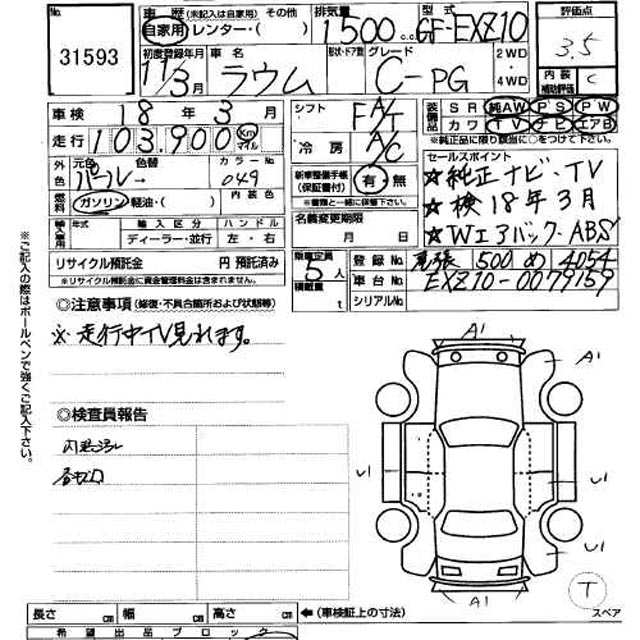 No.
31593
車歴 (※記入は自家用) その他
自家用・レンター・( )
排気量
1500 c.c.
型式
GF-EXZ10
評価点
3.5
内装
補助評価
C
初度登録年月
11/3月
車名
ラウム
形状・ドア数
グレード
C-PG
2WD
・
4WD
車検 18年 3月
走行 103,900 Km マイル
シフト FA/T
冷房 A/C
装備品
SR 純AW PS PW
カワ TV ナビ エアB
※純正品に限り該当に○をつけて下さい。
外色
元色 色替
パール→
カラーNo.
049
燃料
ガソリン・軽油・( )
内装色
新車整備手帳
(保証書付)
有・無
※書類と一緒に保管下さい。
セールスポイント
☆純正ナビ・TV
☆検18年3月
☆Wエアバック・ABS
輸入車用
年式
輸入区分
ハンドル
ディーラー・並行
左・右
名義変更期限
月 日
リサイクル預託金 円 預託済み
※リサイクル預託金に資金管理料金は含まれません。
乗車定員 5人
積載量 t
登録No. 尾張 500 め 4054
車台No. EXZ10-0079159
シリアルNo.
◎注意事項 (修復・不具合箇所および状態等)
※走行中TV見れます。
◎検査員報告
内装汚れ
※ご記入の際はボールペンで強くご記入下さい。
A1
A1
U1
U1
U1
A1
T
スペア
長さ cm 幅 cm 高さ cm ←(車検証上の寸法)
希望出品ブロック